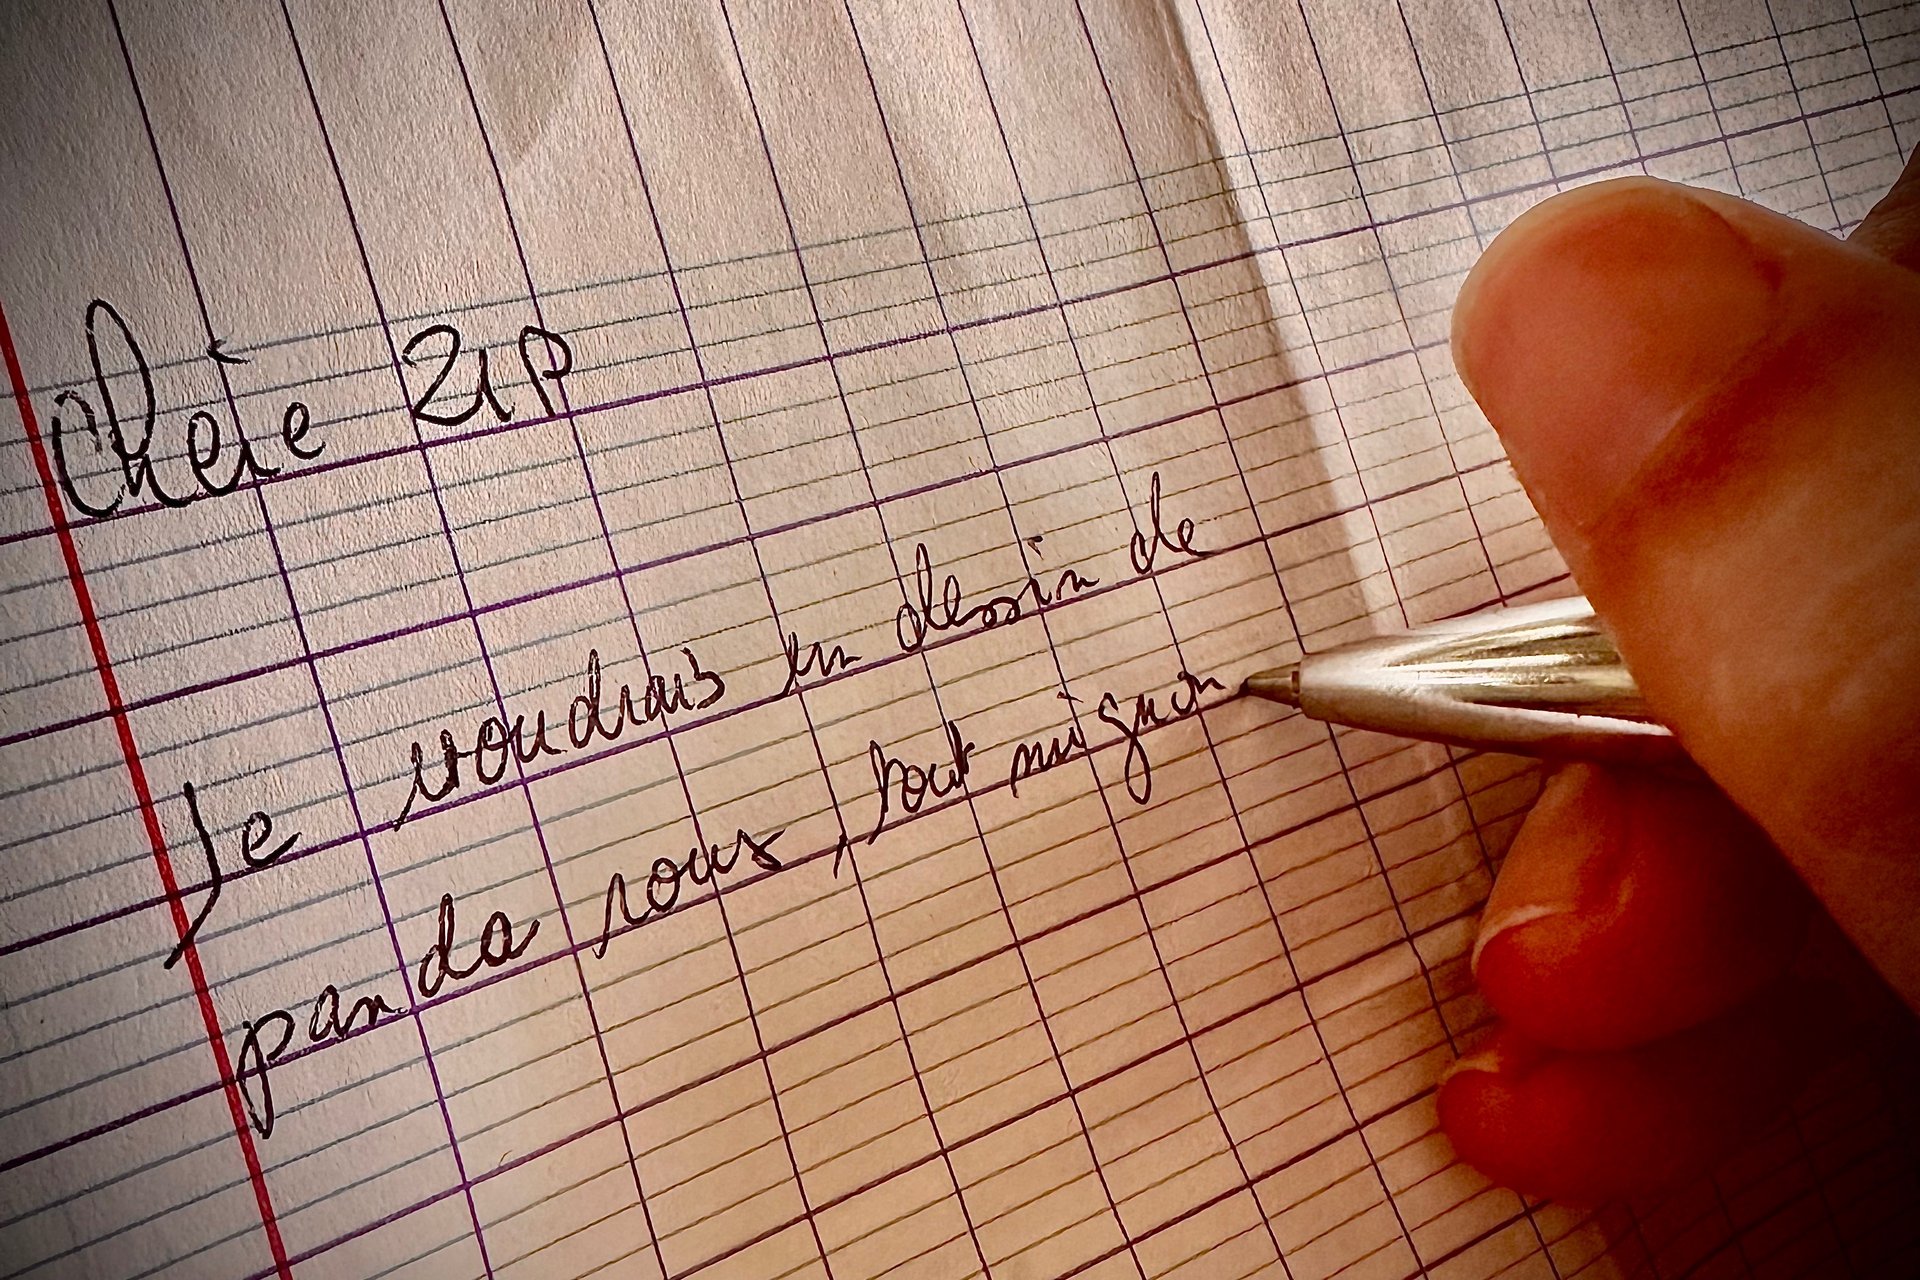 Chère ZIP
Je voudrais un dessin de
panda roux, tout mignon